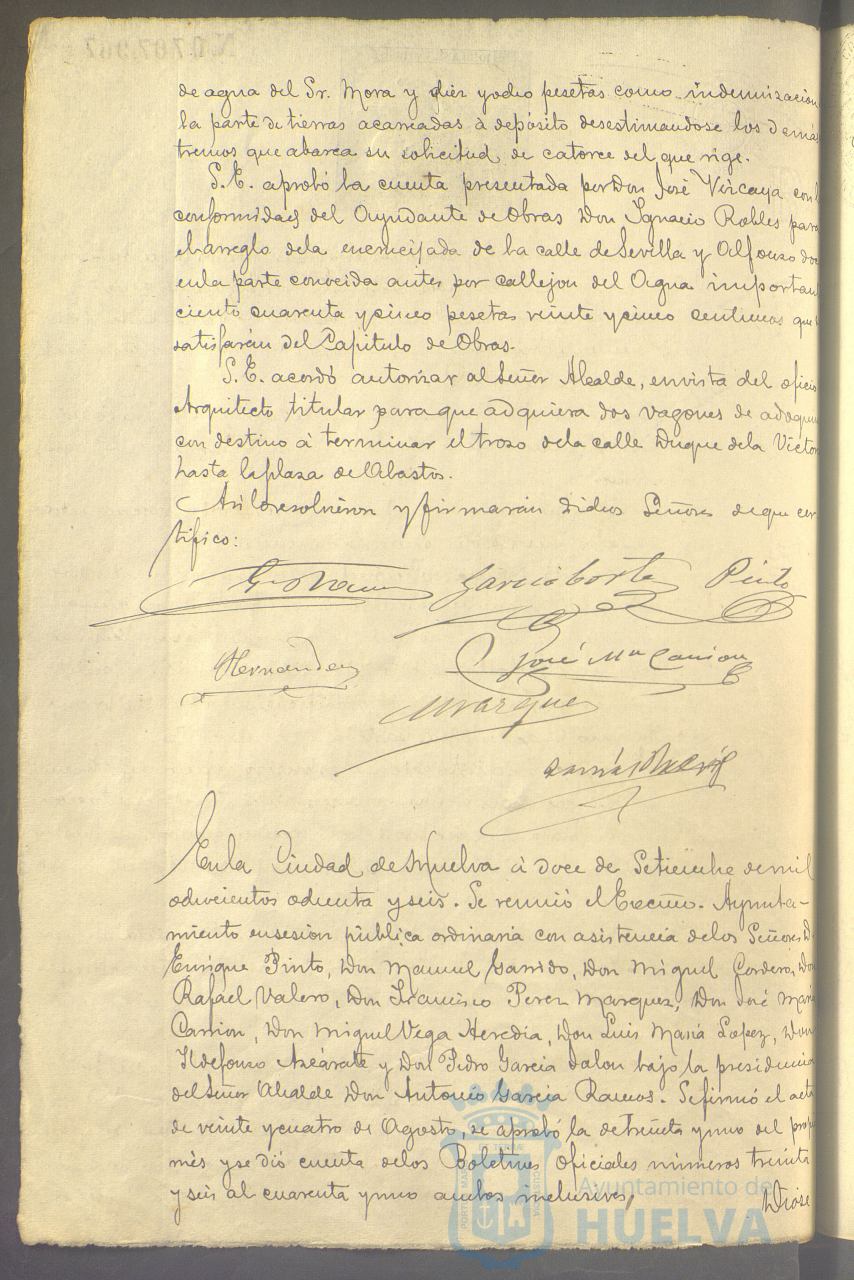 de agua del Sr. Mora y diez y ocho pesetas como indemnizacion
la parte de tierras acarreadas à depósito desestimandose los demás
tremos que abarca su solicitud de catorce del que rige.
S.E. aprobó la cuenta presentada por Don José Vizcaya con
conformidad del Ayudante de Obras Don Ignacio Robles para
el arreglo dela encrucijada de la calle de Sevilla y Alfonso doce
en la parte conocida antes por callejon del Agua importan
ciento cuarenta y cinco pesetas veinte y cinco centimos que
satisfarán del Capitulo de Obras.
S.E. acordó autorizar al Señor Alcalde, en vista del oficio
Arquitecto titular para que adquiera dos vagones de adoquin
con destino à terminar el trozo dela calle Duque dela Victor
hasta la plaza de Abastos.
Asi lo resolvieron y firmarán dichos Señores de que cer
tifico:
García Cortes Pinto
Hernandez José Mª Carrion
Marquez
En la Ciudad de Huelva à doce de Setiembre de mil
ochocientos ochenta y seis. Se reunió el Excmo. Ayunta-
miento en sesion pública ordinaria con asistencia de los Señores D.
Enrique Pinto, Don Manuel Garrido, Don Miguel Cordero, Don
Rafael Valero, Don Francisco Perez Marquez, Don José Maria
Carrion, Don Miguel Vega Heredia, Don Luis Maria Lopez, Don
Ildefonso Azcárate y Don Pedro Garcia Jalon bajo la presidencia
del Señor Alcalde Don Antonio Garcia Ramos. Se firmó el acta
de veinte y cuatro de Agosto, se aprobó la de treinta y uno del prop
mes y se dió cuenta delos Boletines Oficiales números treinta
y seis al cuarenta y uno ambos inclusives,
Diose
Ayuntamiento de
HUELVA